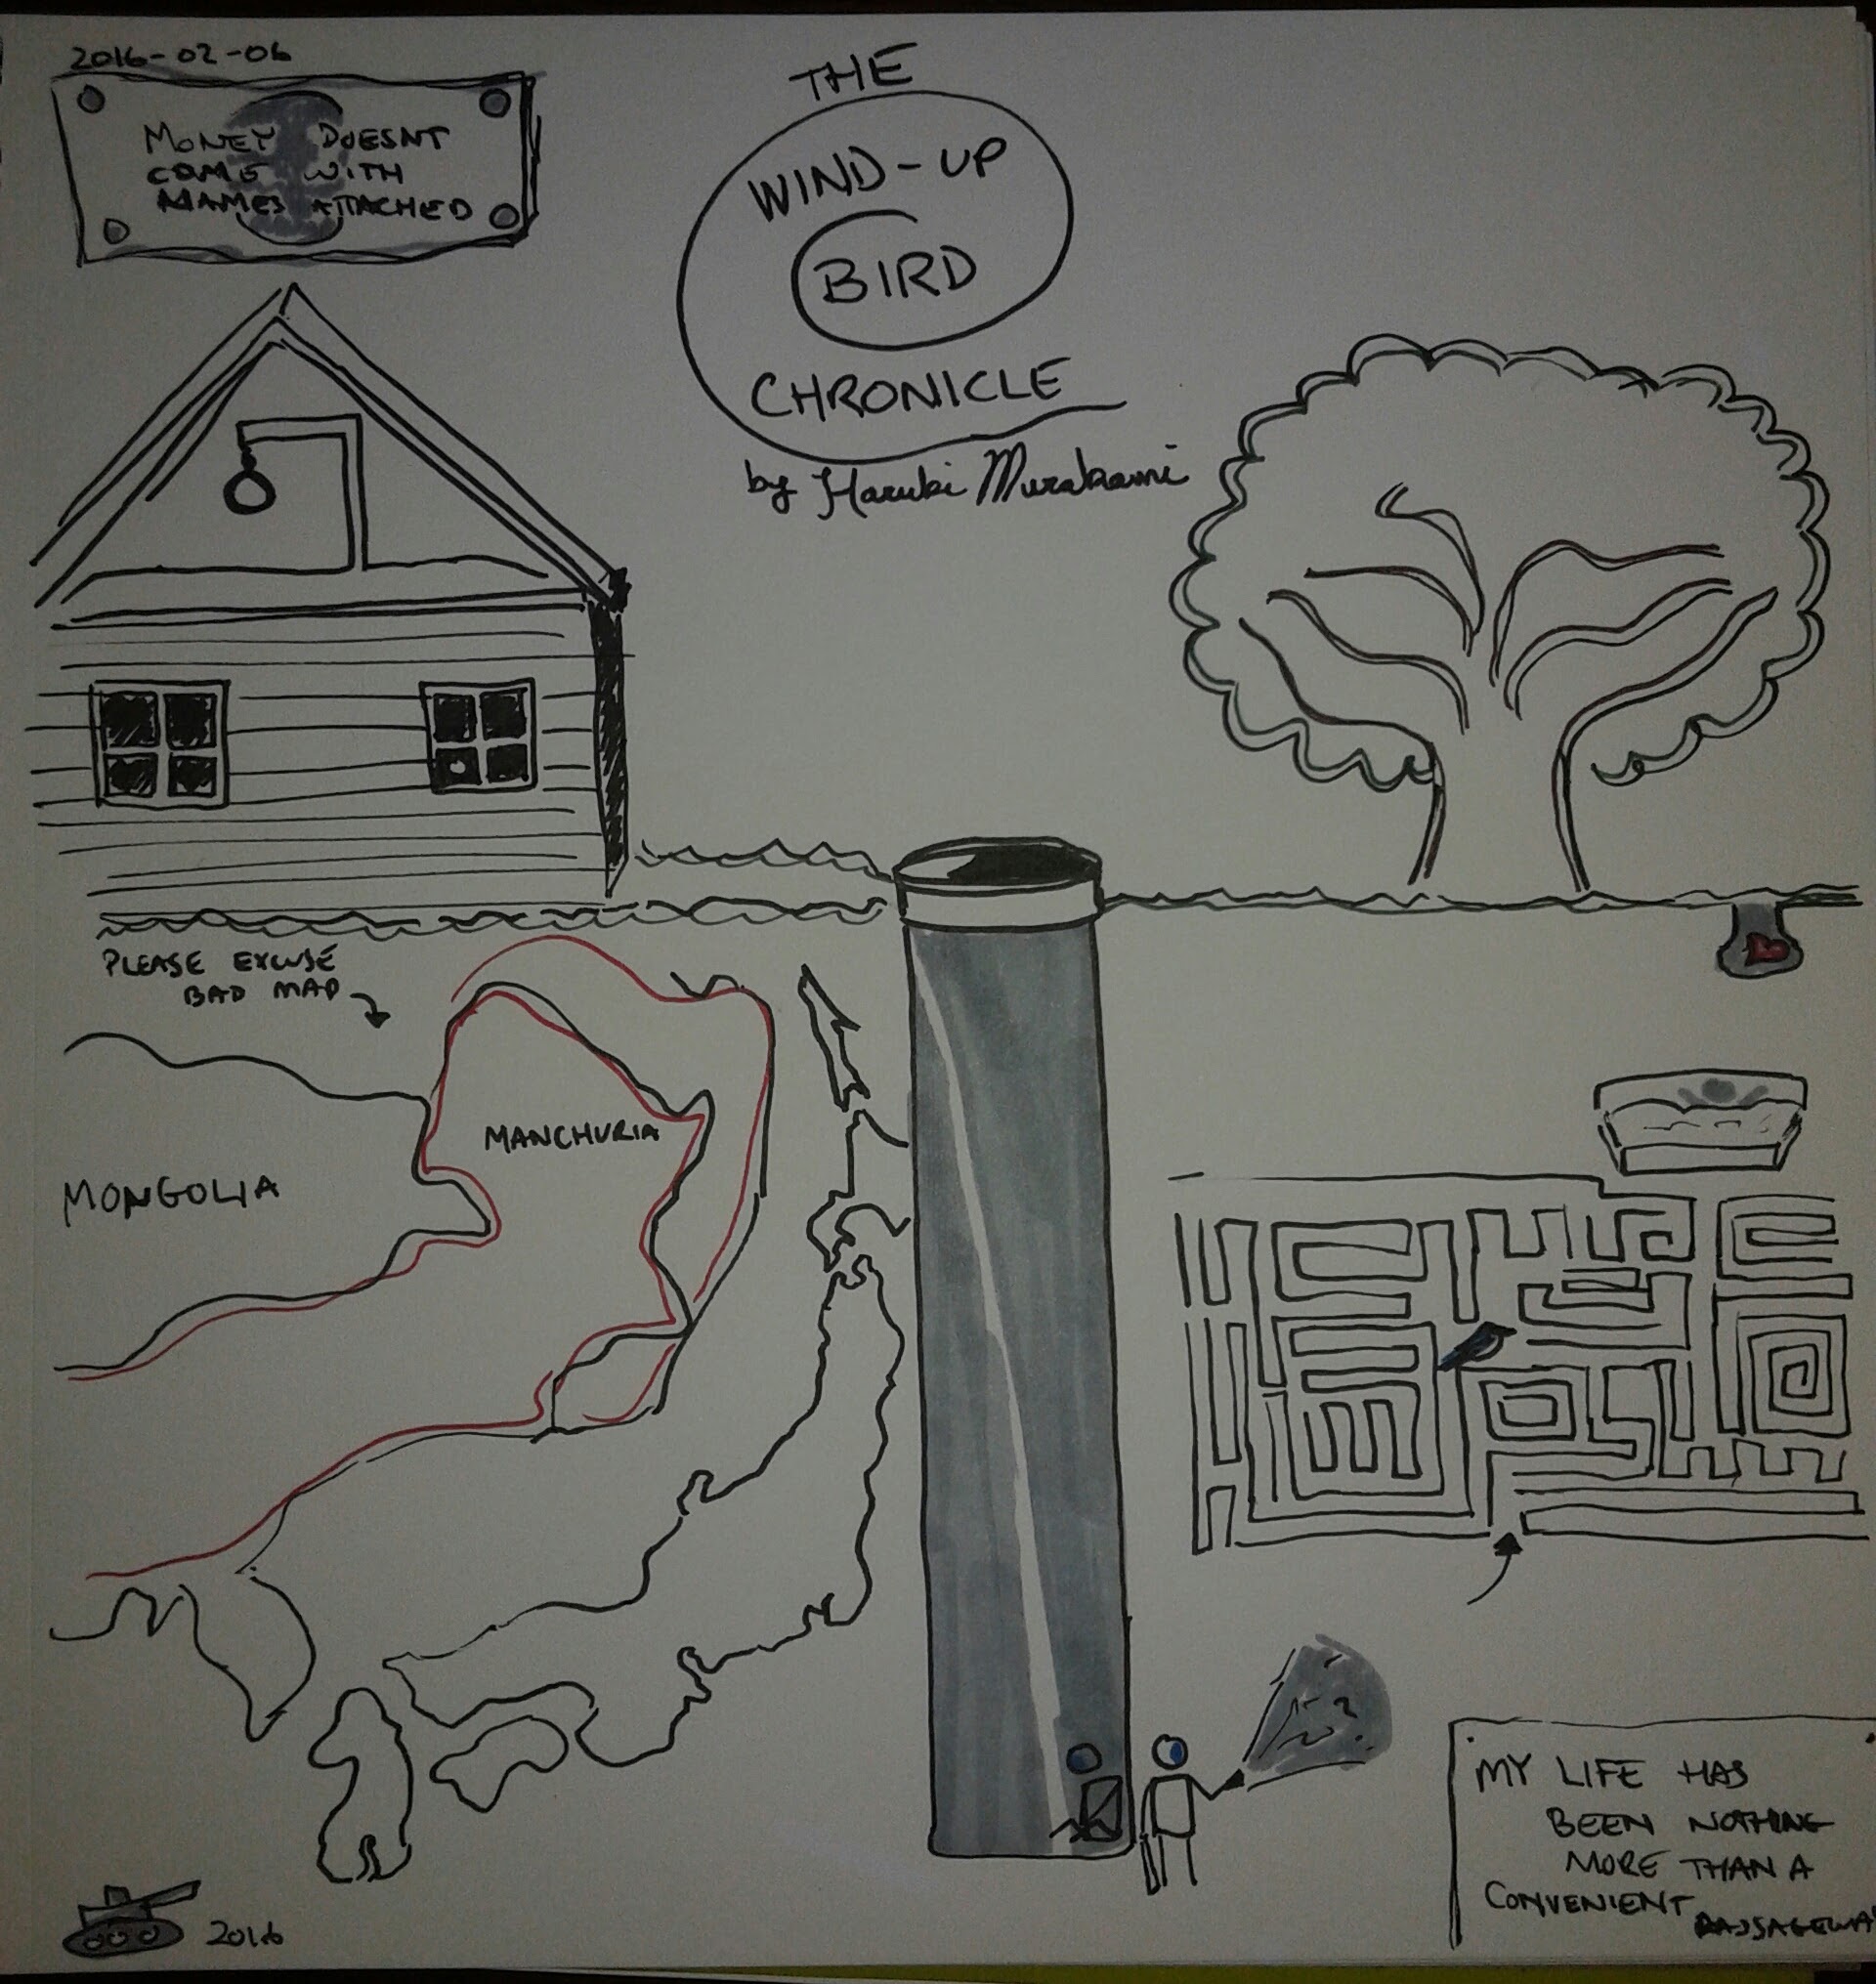 2016-02-06
MONEY DOESNT
COME WITH
NAMES ATTACHED
THE
WIND-UP
BIRD
CHRONICLE
by Haruki Murakami
PLEASE EXCUSE
BAD MAP
MONGOLIA
MANCHURIA
MY LIFE HAS
BEEN NOTHING
MORE THAN A
CONVENIENT
PASSAGEWAY
2016